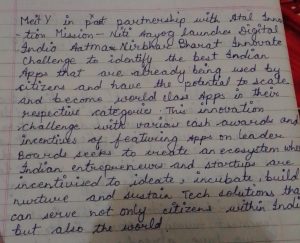 MeitY in post partnership with Atal Inno
-tion Mission - Niti Anyog launches Digital
India Aatmanirbhar Bharat Innovate
Challenge to identify the best Indian
Apps that are already being used by
citizens and have the potential to scale
and become world class Apps in their
respective categories. This innovation
challenge with various cash awards and
incentives of featuring Apps on leader
Boards seeks to create an ecosystem whe
Indian entrepreneur and startups are
incentivised to ideate, incubate, build
nurture and sustain Tech solutions tha
can serve not only citizens within Indi
but also the world.